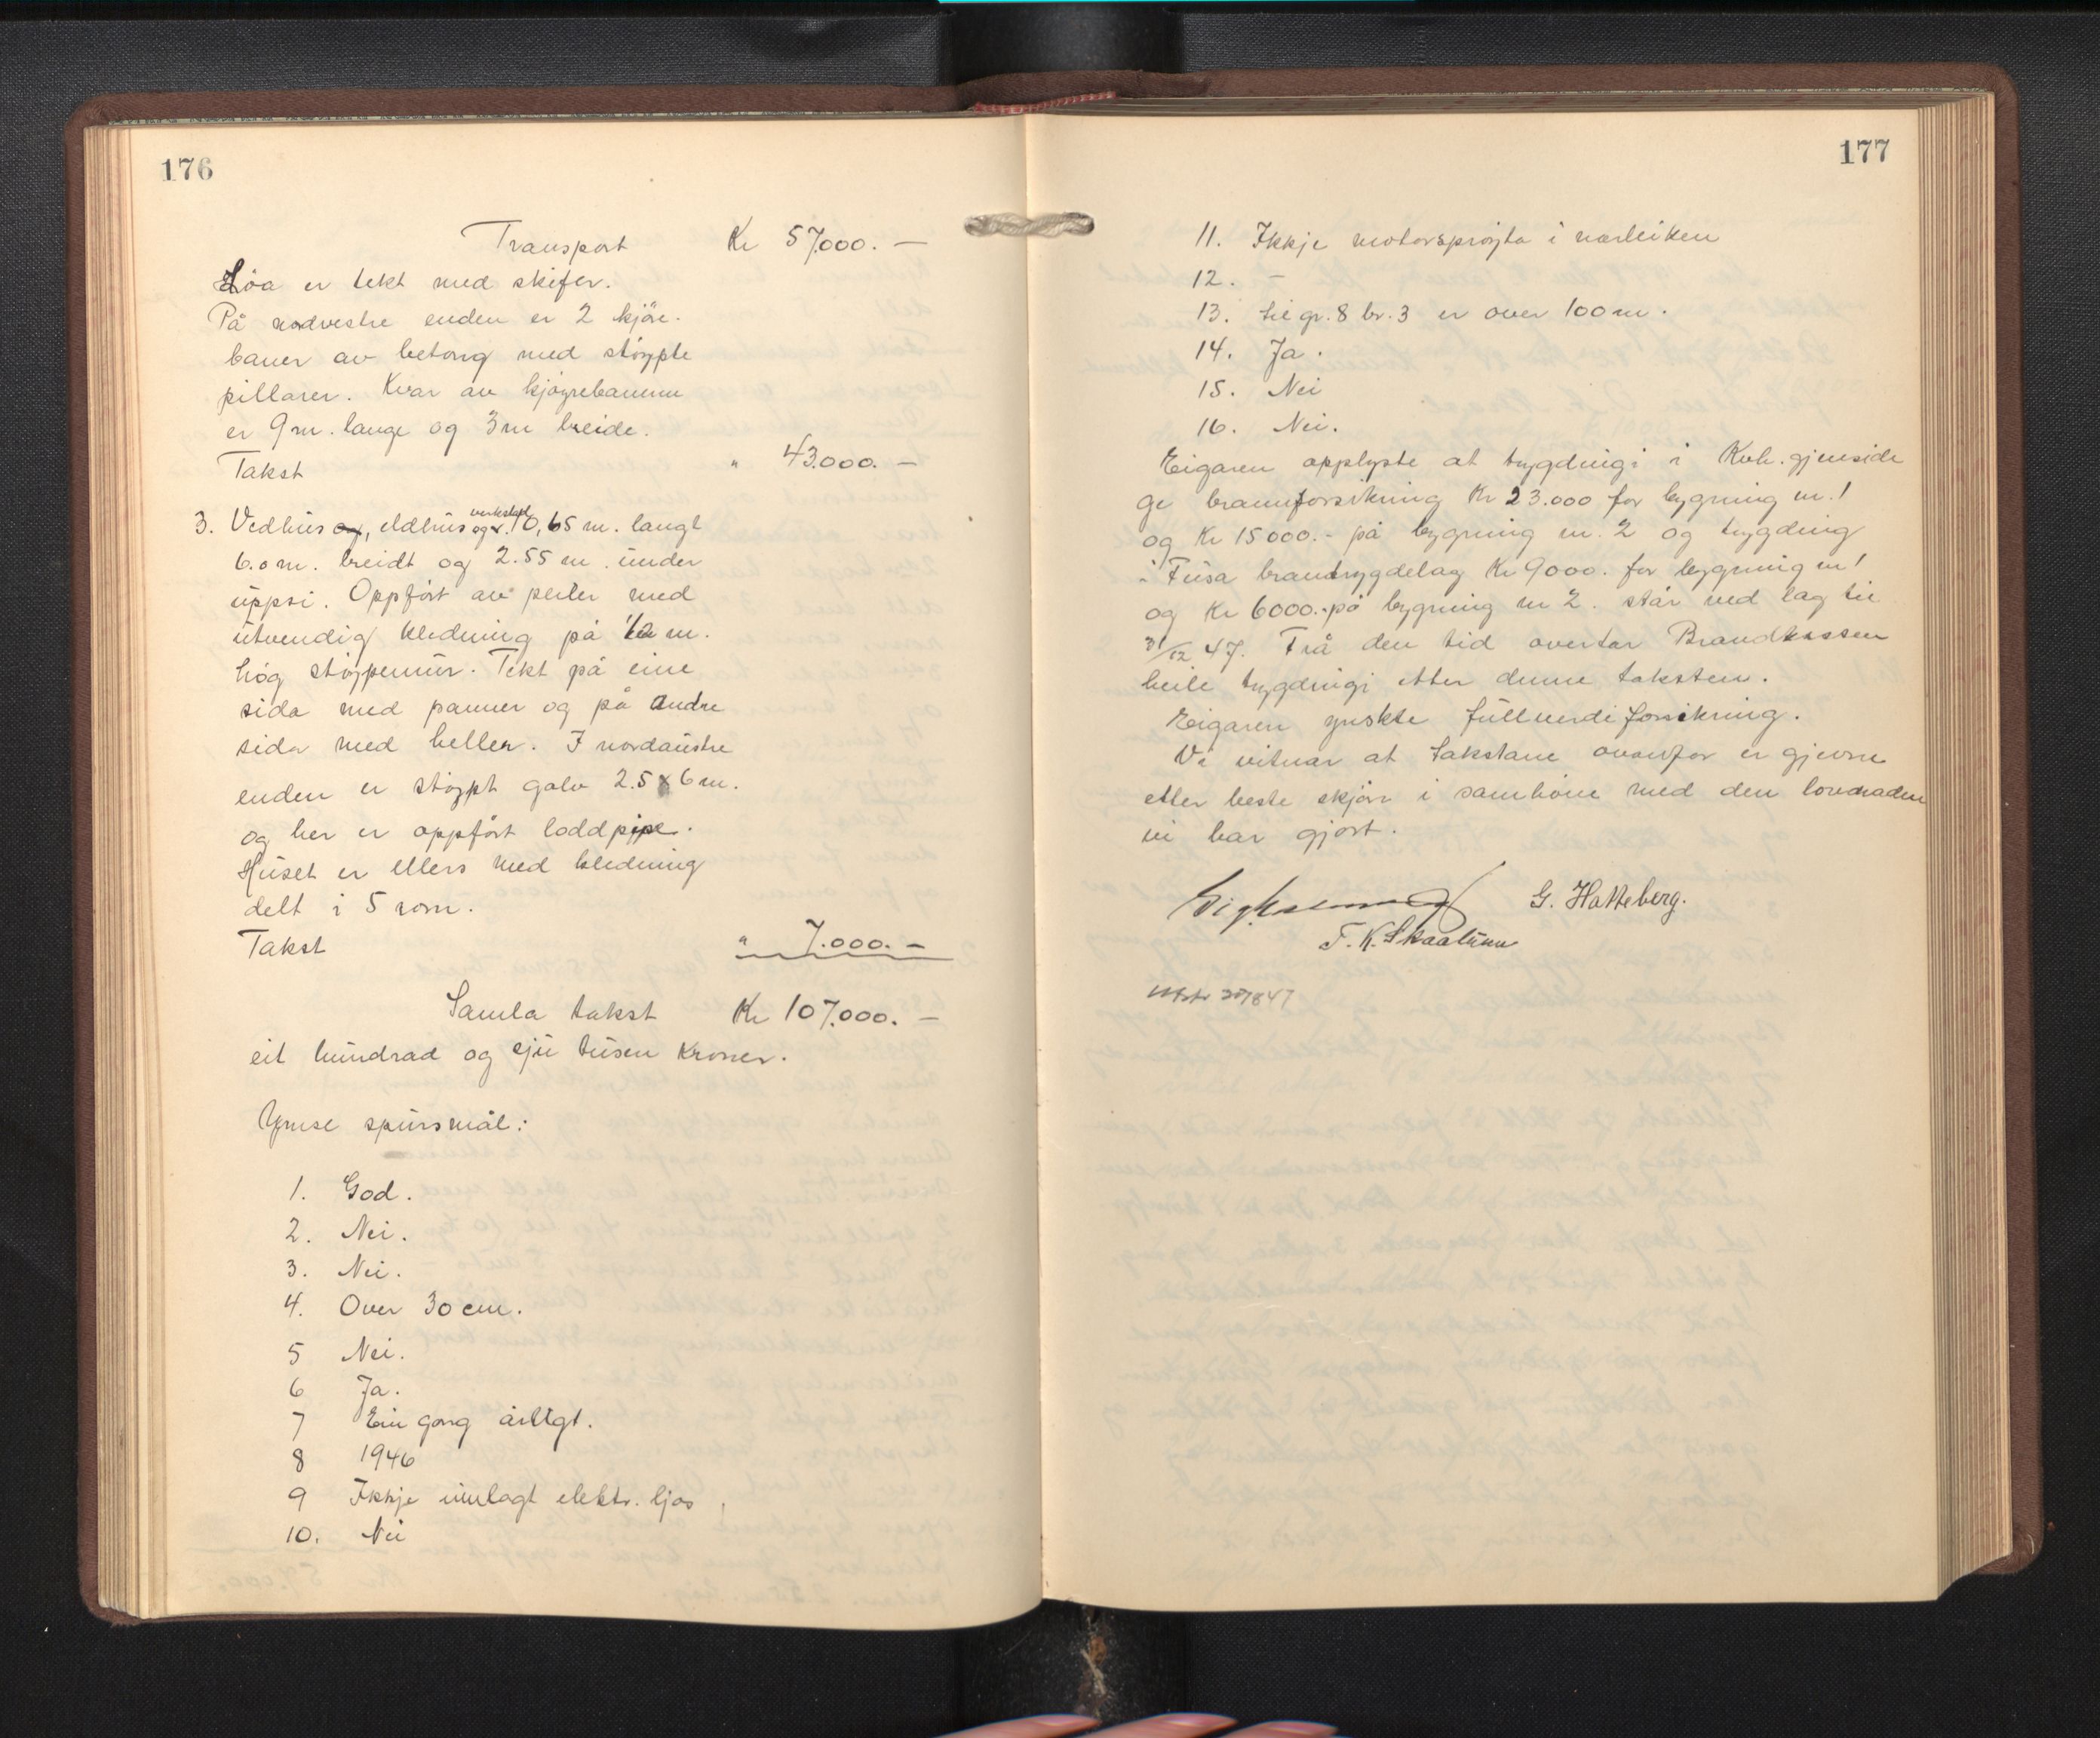 176
Transport Kr 57.000. —
Löa er tekt med skifer.
På nordvestre enden er 2 kjöre-
baner av betong med stöypte
pillarer. Kvar av kjöyrebanene
er 9 m. lange og 3 m breide.
Takst " 43.000. —
3. Vedhus og, eldhus og v. verkstad 10,65 m. langt
6.0 m. breidt og 2.55 m. under
uppsi. Oppfört av peiler med
utvendig kledning på 1/2 m.
hög stöypemur. Tekt på eine
sida med panner og på andre
sida med heller. I nordaustre
enden er stöypt golv 2.5 x 6 m.
og her er oppfört loddpipe.
Huset er ellers med kledning
delt i 5 rom.
Takst " 7.000. —
Samla takst Kr 107.000. —
eit hundrad og sju tusen kroner.
Ymse spursmål:
1. God.
2. Nei.
3. Nei.
4. Over 30 cm.
5 Nei.
6 Ja.
7 Ein gong årligt.
8 1946
9 Ikkje innlagt elektr. ljos
10. Nei
177
11. Ikkje motorspröyta i nærleiken
12. –
13. til gr. 8 br. 3 er over 100 m.
14. Ja.
15. Nei
16. Nei.
Eigaren opplyste at trygdingi i Kvh. gjenside
ge brannforsikring Kr 23.000 for bygning nr. 1
og Kr 15000.- på bygning nr. 2 og trygding
i Fusa brandtrygdelag Kr 9000. for bygning nr 1
og Kr 6000.- på bygning nr 2. står ved lag til
31/12 47. Frå den tid overtar Brandkassen
heile trygdingi etter denne taksten.
Eigaren ynskte fullverdiforsikring.
Vi vitnar at takstane ovanfor er gjevne
etter beste skjön i samhöve med den lovnaden
vi har gjort.
G. Hatteberg.
T. K. Skaatun